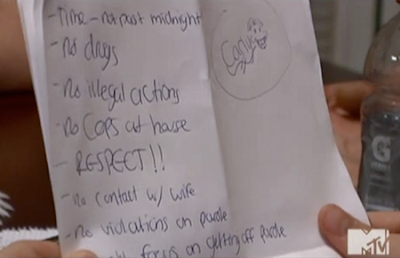 -Time - not past midnight
- no drugs
- no illegal actions
- no COPS at house
- RESPECT!!
- no contact w/ wife
- no violations on parole
focus on getting off parole
G
MTV